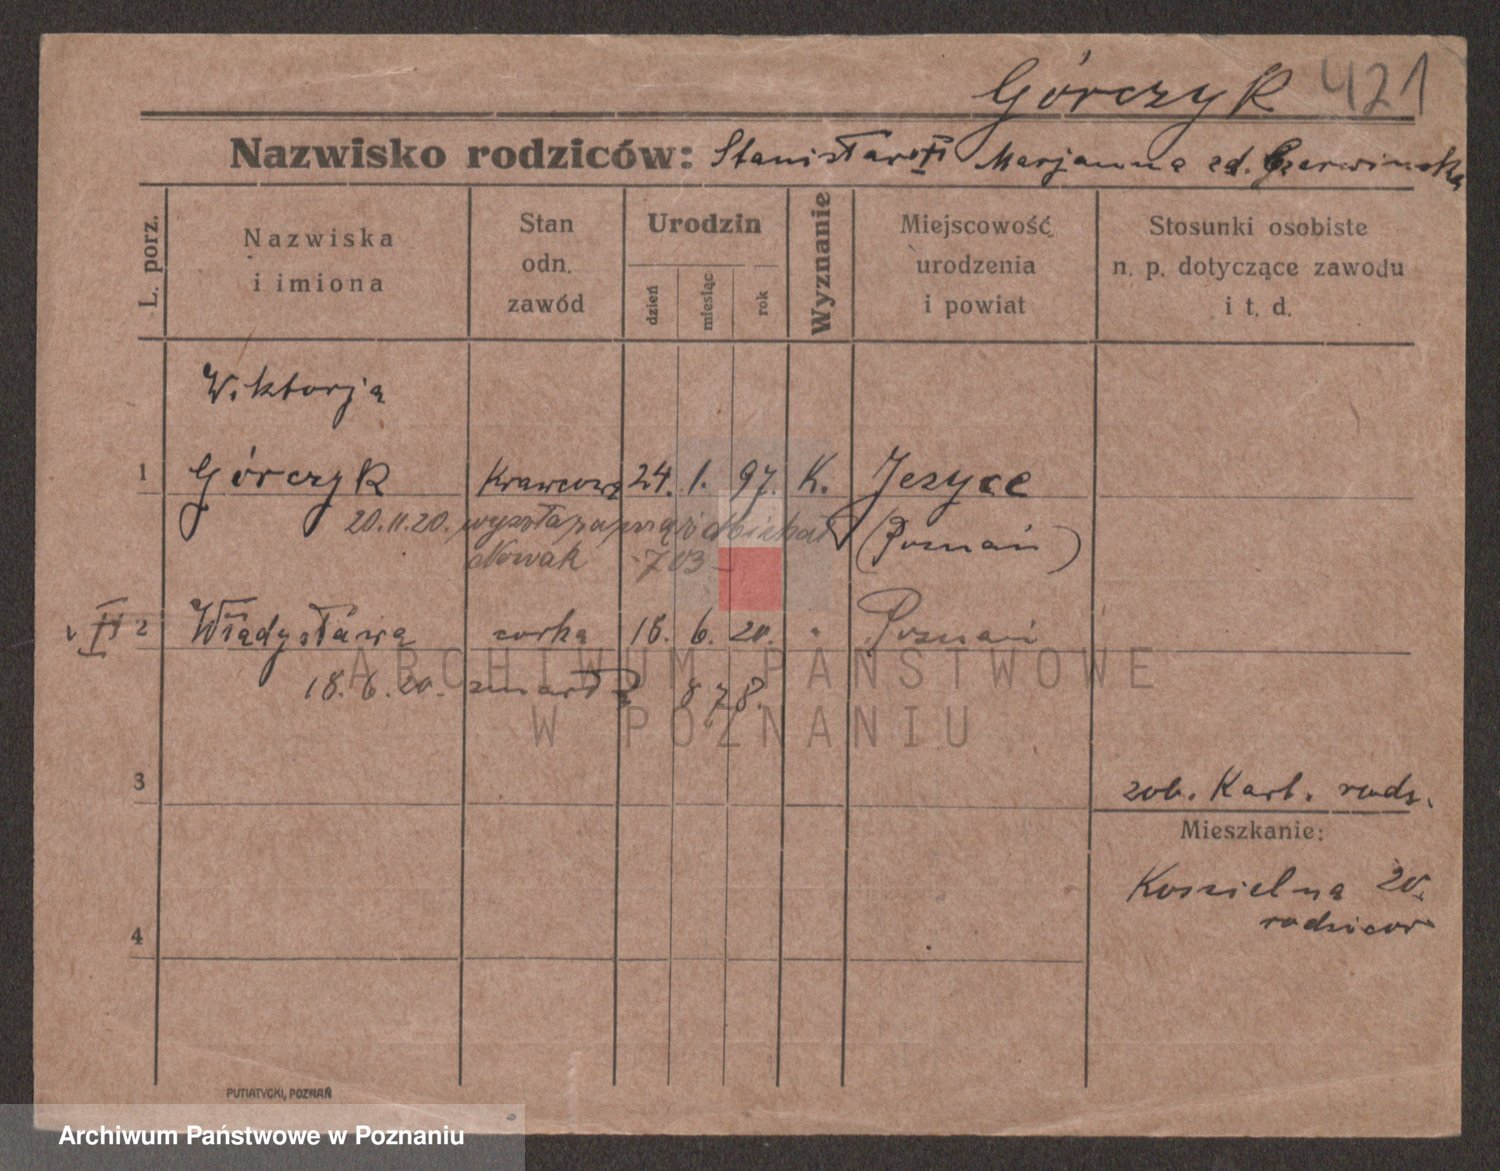 Górczyk 421
Nazwisko rodziców: Stanisław Marjanna zd. Czerwińska
L. porz.
Nazwiska i imiona
Stan odn. zawód
Urodzin
dzień
miesiąc
rok
Wyznanie
Miejscowość urodzenia i powiat
Stosunki osobiste n. p. dotyczące zawodu i t. d.
Wiktorja
1 Górczyk Krawcowa 24. 1. 97. K. Jezyce
20.11.20. wyszła (Poznań)
Nowak 703
2 Władysława corka 18. 6. 20. " Poznań
18.6.20. zmarła 878.
ARCHIWUM PAŃSTWOWE
W POZNANIU
3
zob. Kart. rodz.
Mieszkanie:
Koszielna 20.
rodzicow
4
PUTIATYCKI, POZNAŃ
Archiwum Państwowe w Poznaniu